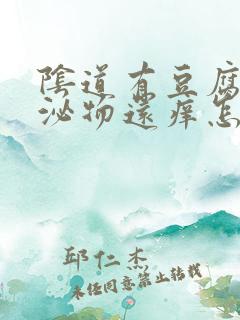 陰道有豆腐
泌物還痒怎
邱仁杰
未经同意禁止转载